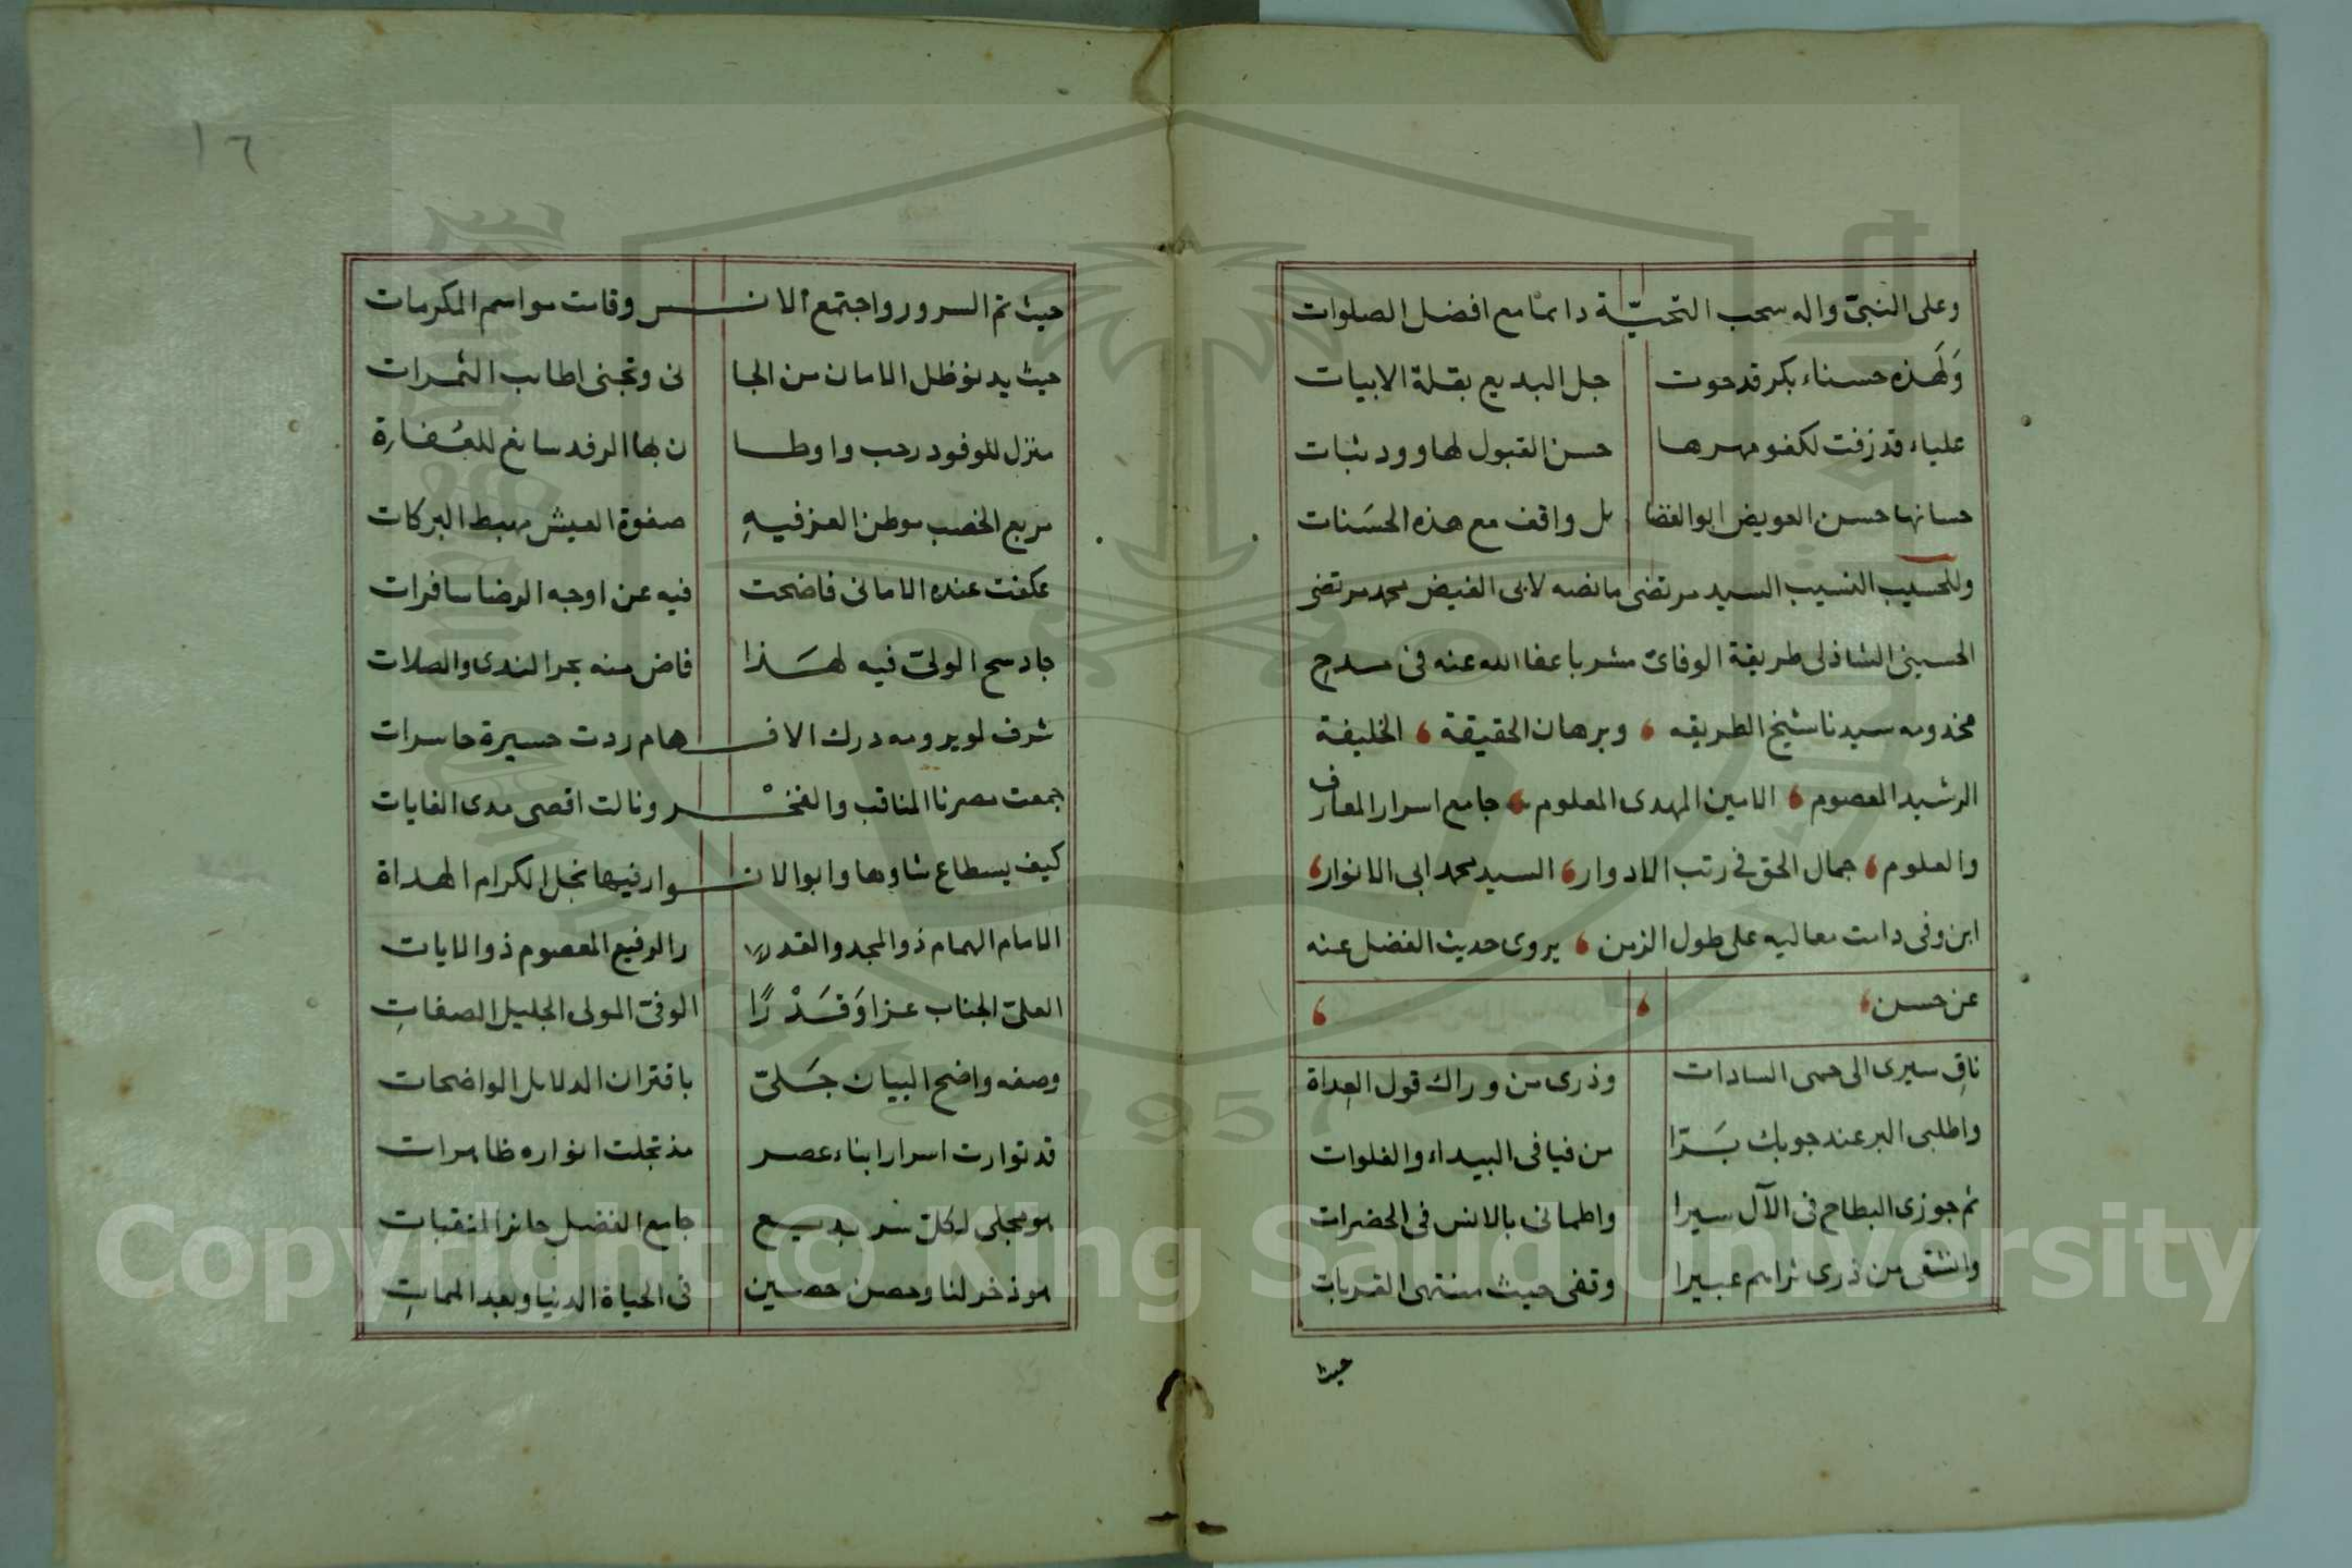 وعلى النبىّ واله سحب التحيّة دائما مع افضل الصلوات
وَلَهذه حسناء بكر قد حوت جل البديع بقلة الابيات
علياء قد زفت لكفو مهرها حسن القبول لها وود ثبات
حسانها حسن العويض ابو الفضا ئل واقف مع هذه الحسَنات
وللحسيب النسيب السيد مرتضى ما نصه لابى الفيض محمد مرتضى
الحسينى الشاذلى طريقة الوفائ مشربا عفا الله عنه فى مدح
مخدومه سيدنا شيخ الطريقه ، وبرهان الحقيقة ، الخليفة
الرشيد المعصوم ، الامين المهدى المعلوم ، جامع اسرار المعارف
والعلوم ، جمال الحق فى رتب الادوار ، السيد محمد ابى الانوار ،
ابن وفى دامت معاليه على طول الزمن ، يروى حديث الفضل عنه
عن حسن ، ، ،
ناقِ سيرى الى حمى السادات وذرى من وراك قول العِداة
واطلبى البر عند جوبك بَرّا من فيافى البيداء والفلوات
ثم جوزى البطاح فى الآل سيرا واطمانى بالانس فى الحضرات
وانشقى من ذرى ثراهم عبيرا وتفى حيث منتهى القربات
حيث
١٦
حيث تم السرور واجتمع الانس وقامت مواسم المكرمات
حيث يدنو ظل الامان من الجا نى وتجنى اطايب الثمرات
منزل للوفود رحب واوطا ن بها الرفد سائغ للعُفارة
مربع الخصب موطن العز فيهِ صفوة العيش مهبط البركات
عكفت عنده الامانى فاضحت فيه عن اوجه الرضا سافرات
جاد سح الولىّ فيه لهَذا فاض منه بحر الندى والصلات
شرف لو يرومه درك الافهام ردت حسيرة حاسرات
جمعت مصرنا المناقب والفخْر ونالت اقصى مدى الغايات
كيف يسطاع شاوها وابو الانوار فيها نجل الكرام الهداة
الامام الهمام ذو المجد والقد ر الرفيع المعصوم ذو الايات
العلىّ الجناب عزا وَقَدْرًا الوفىّ المولى الجليل الصفاتِ
وصفه واضح البيان جَلىّ باقتران الدلايل الواضحات
قد توارت اسرار ابناء عصر مذ تجلت انواره ظاهرات
هو مجلى لكل سر بديع جامع الفضل حائز المنقبات
هو ذخر لنا وحصن حصين فى الحياة الدنيا وبعد المماتِ
Copyright © King Saud University
1957